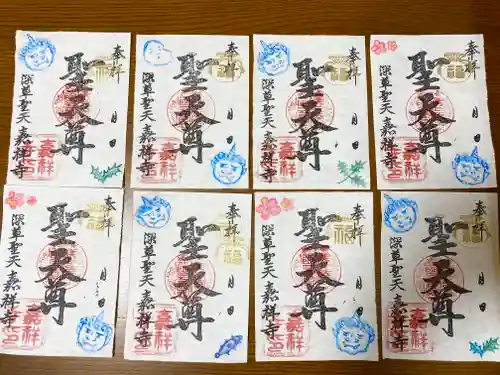 奉拝
聖天尊
月 日
深草聖天 嘉祥寺
奉拝
聖天尊
月 日
深草聖天 嘉祥寺
奉拝
聖天尊
月 日
深草聖天 嘉祥寺
奉拝
聖天尊
月 日
深草聖天 嘉祥寺
奉拝
聖天尊
月 日
深草聖天 嘉祥寺
奉拝
聖天尊
月 日
深草聖天 嘉祥寺
奉拝
聖天尊
月 日
深草聖天 嘉祥寺
奉拝
聖天尊
月 日
深草聖天 嘉祥寺